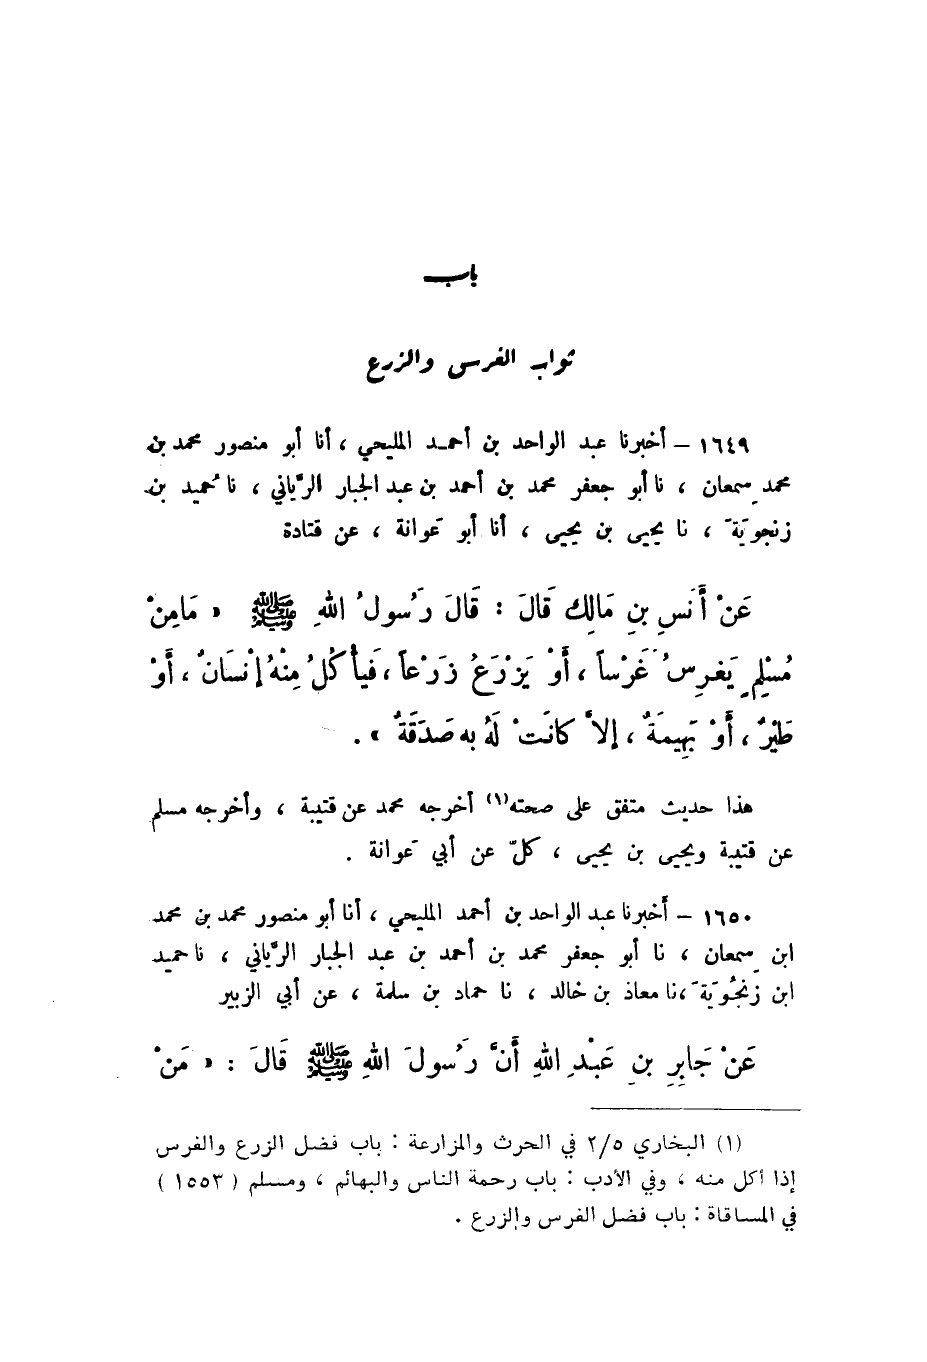 باب
ثواب الغرس والزرع
١٦٤٩ – أخبرنا عبد الواحد بن أحمد المليحي ، أنا أبو منصور محمد بن
محمد سمعان ، نا أبو جعفر محمد بن أحمد بن عبد الجبار الرَّياني ، نا حُميد بن
زنجويَةَ ، نا يحيى بن يحيى ، أنا أبو عَوانة ، عن قتادة
عَنْ أَنَسِ بنِ مَالِك قَالَ : قَالَ رَسُولُ اللهِ ﷺ « مَامِنْ
مُسْلِمٍ يَغرِسُ غَرْساً ، أَوْ يَزْرَعُ زَرْعاً ، فَيأكُلُ مِنْهُ إنْسَانٌ ، أَوْ
طَيْرٌ ، أَوْ بَهِيمَةٌ ، إلاَّ كانَتْ لَهُ به صَدَقَةٌ » .
هذا حديث متفق على صحته(١) أخرجه محمد عن قتيبة ، وأخرجه مسلم
عن قتيبة ويحيى بن يحيى ، كلّ عن أبي عَوانة .
١٦٥٠ – أَخبرنا عبد الواحد بن أحمد المليحي ، أنا أبو منصور محمد بن محمد
ابن سِمعان ، نا أبو جعفر محمد بن أحمد بن عبد الجبار الرَّياني ، نا حميد
ابن زَنجُويَةَ ،نا معاذ بن خالد ، نا حماد بن سلمة ، عن أبي الزبير
عَنْ جَابِرِ بنِ عَبْدِ اللهِ أَنَّ رَسُولَ اللهِ ﷺ قَالَ : « مَنْ
(١) البخاري ٢/٥ في الحرث والمزارعة : باب فضل الزرع والغرس
إذا أكل منه ، وفي الأدب : باب رحمة الناس والبهائم ، ومسلم ( ١٥٥٣ )
في المساقاة : باب فضل الغرس والزرع .